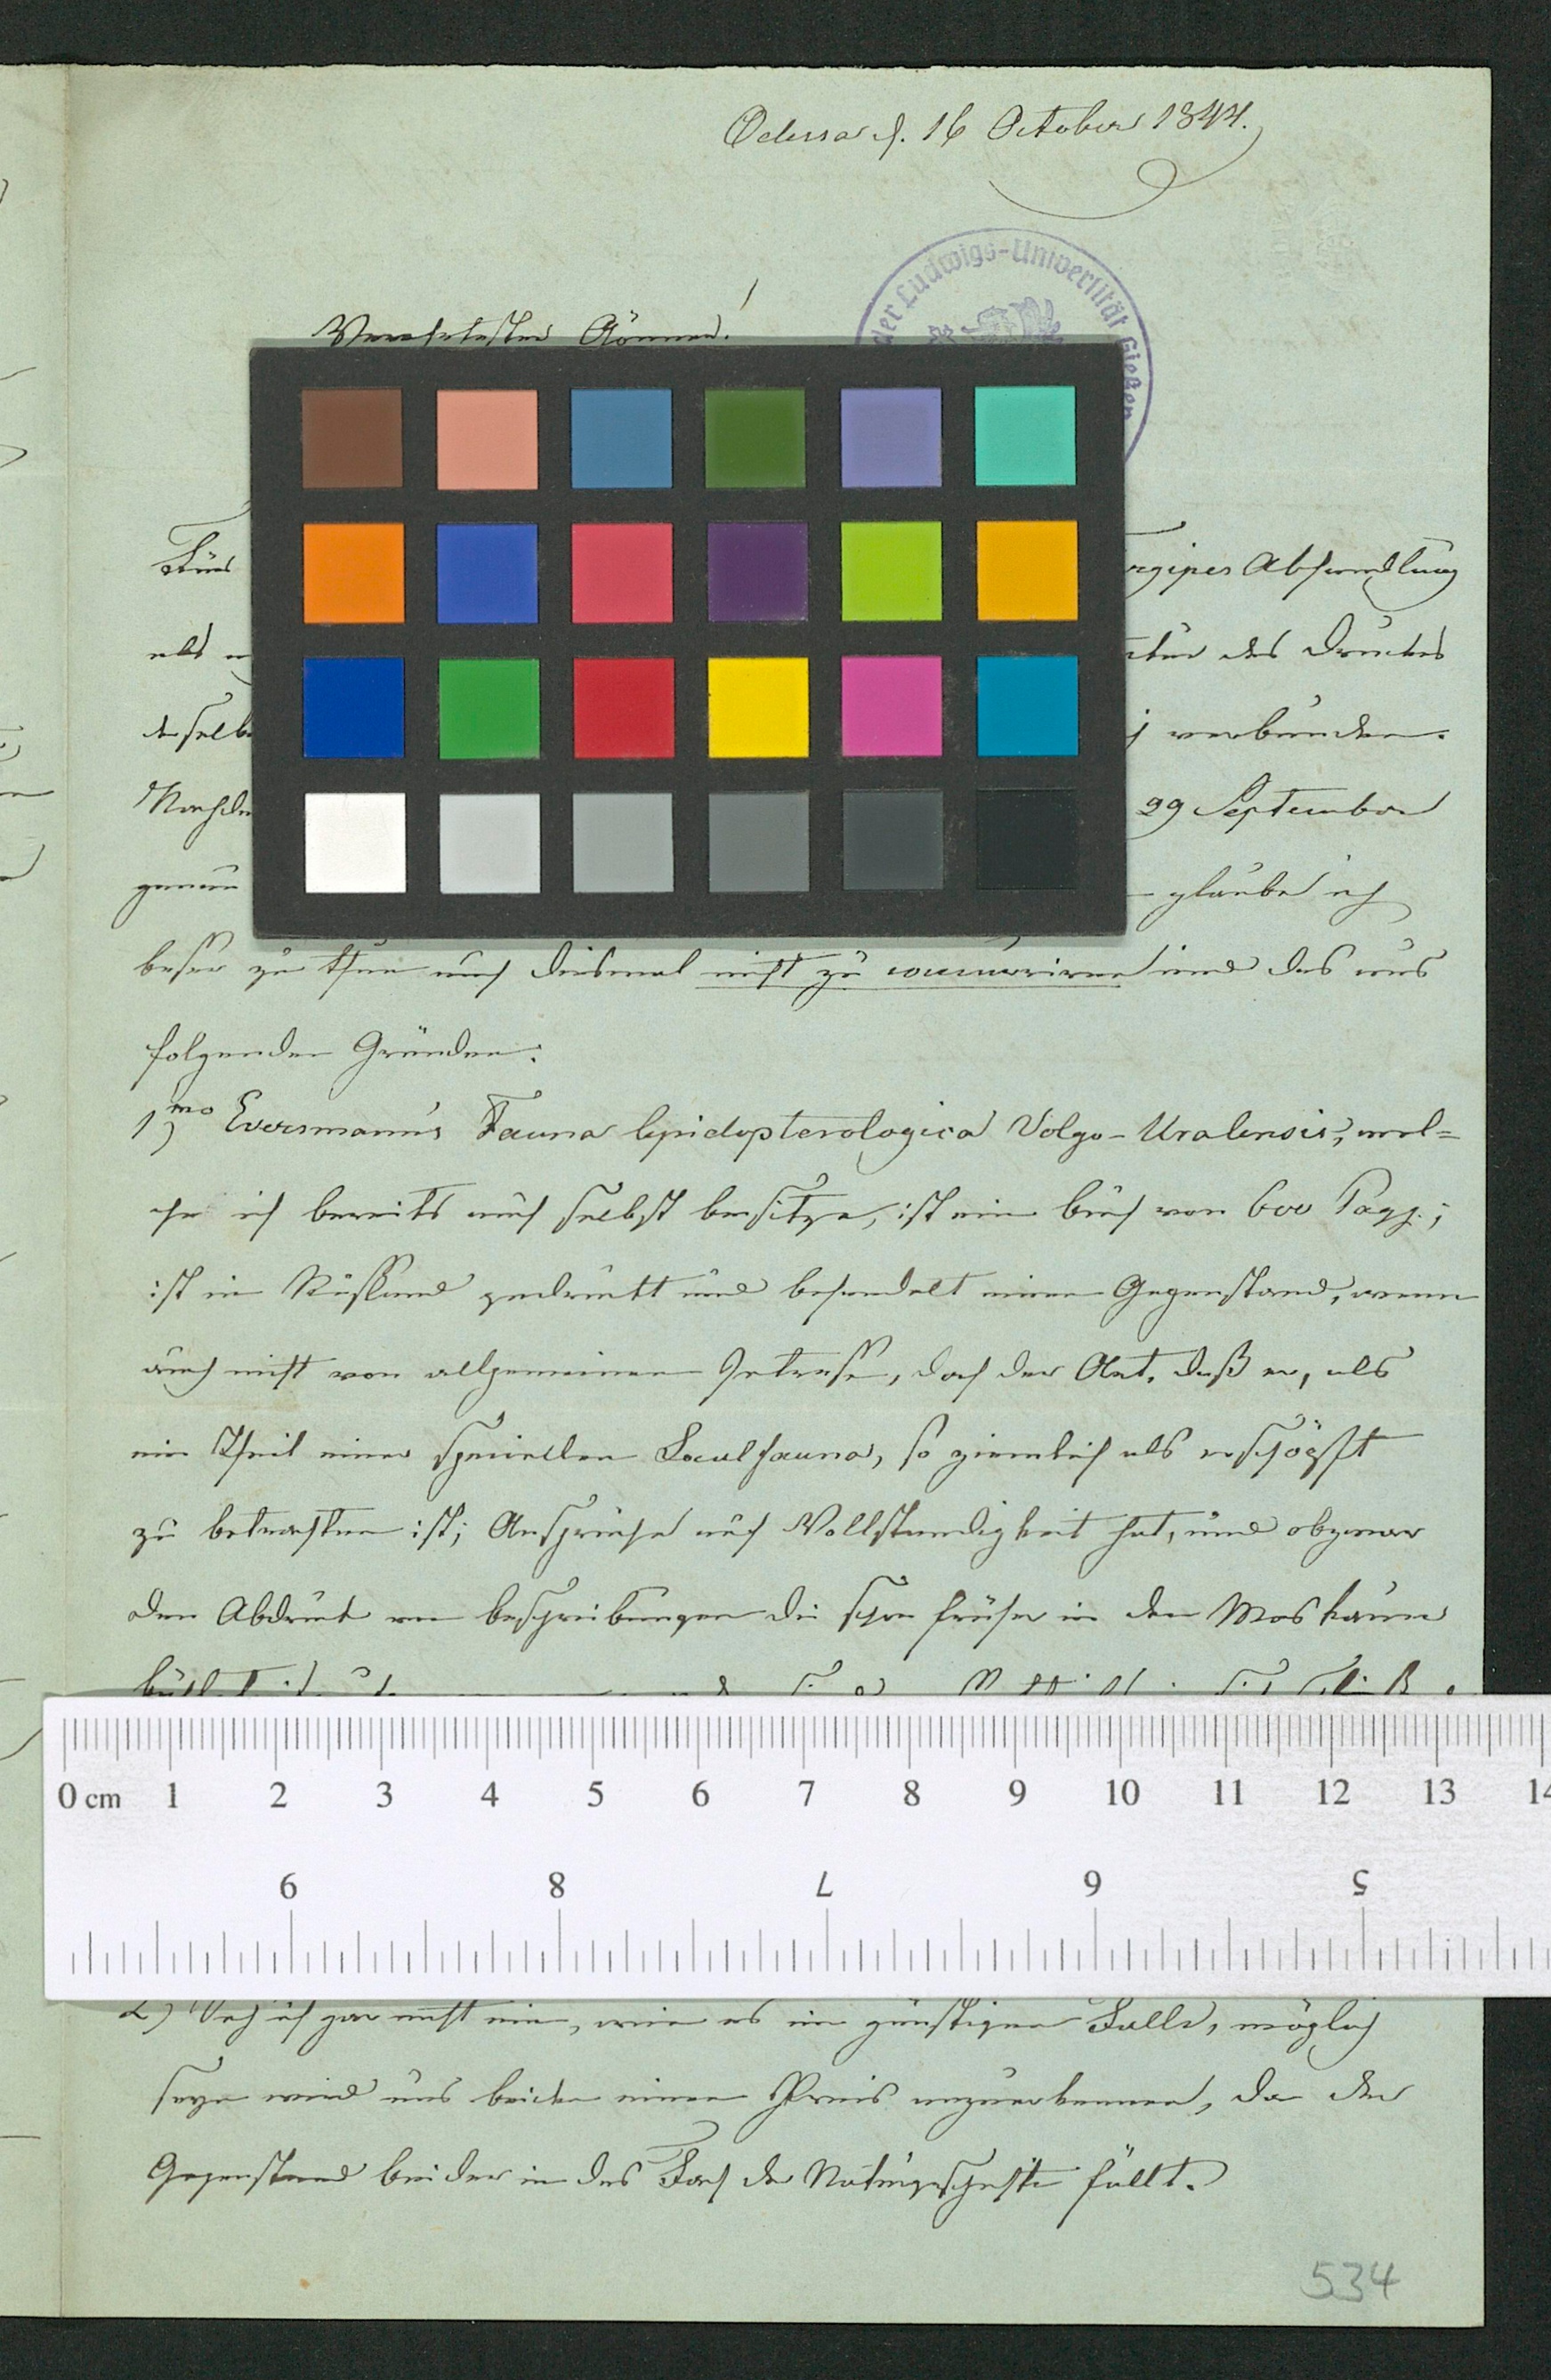 Odessa d. 16 October 1844.
Verehrtester Gönner!
der Ludwigs-Universität Gießen
Fürs
rgipes Abhandlung
als
des Druckes
desselb
verbunden.
Nachde
29 September
genau
glaube ich
besser zu thun auch diesmal nicht zu concurriren und das aus
folgenden Gründen:
1)mo Eversmann's Fauna lepidopterologica Volgo-Uralensis, wel=
che ich bereits auch selbst besitze, ist ein Buch von 600 Pagg.;
ist in Russland gedruckt und behandelt einen Gegenstand, wenn
auch nicht von allgemeinem Interesse, doch der Art, daß er, als
ein Theil einer speciellen Localfauna, so ziemlich als erschöpft
zu betrachten ist; Ansprüche auf Vollständigkeit hat, und obzwar
den Abdruck von Beschreibungen die schon früher in den Moskauer
2) Seh ich gar nicht ein, wie es im günstigen Falle, möglich
seyn wird uns beiden einen Preis anzuerkennen, da der
Gegenstand beider in das Fach der Naturgeschichte fällt.
0 cm 1 2 3 4 5 6 7 8 9 10 11 12 13 14
9 8 7 6 5
534